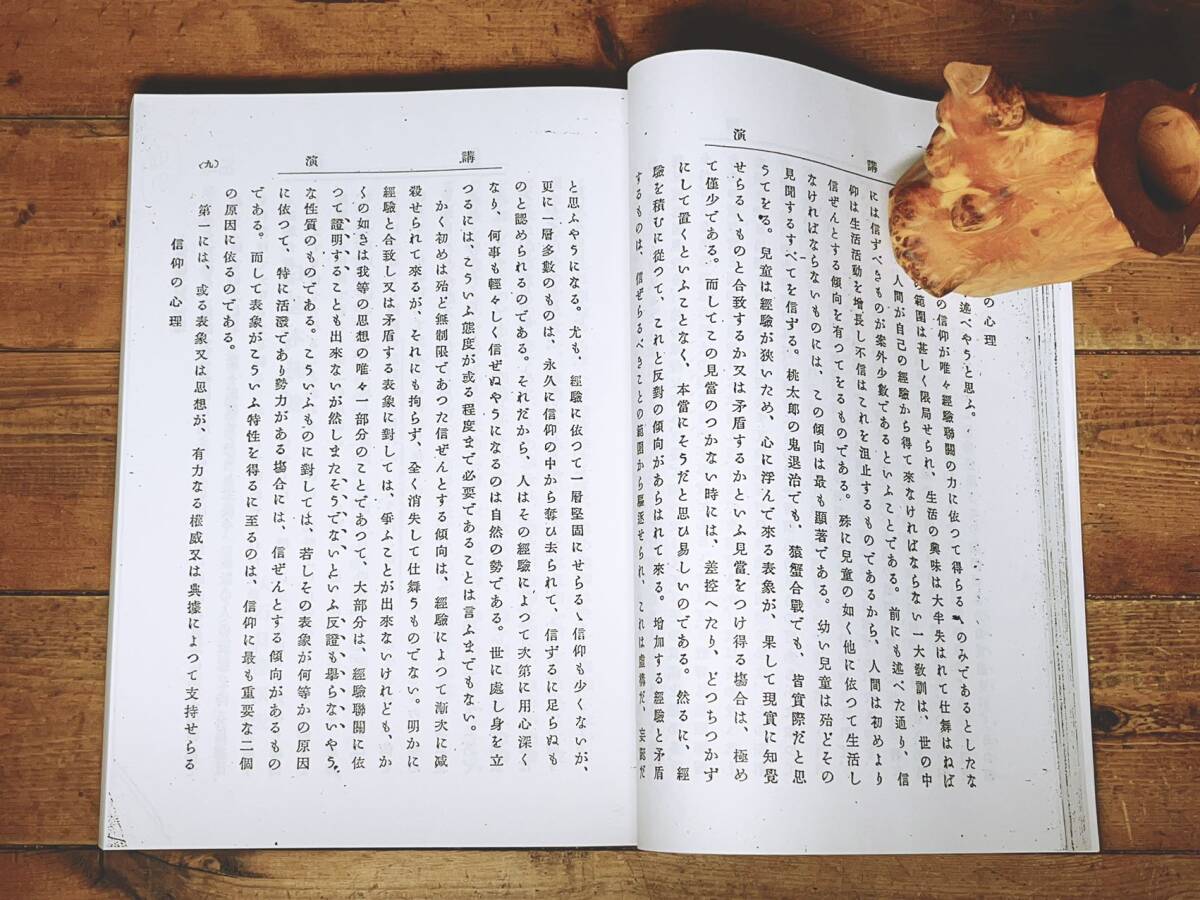 講演
の心理
述べやうと思ふ。
の信仰が唯々經驗聯關の力に依つて得らるゝのみであるとしたな
範圍は甚しく限局せられ、生活の興味は大半失はれて仕舞はねば
人間が自己の經驗から得て來なければならない一大敎訓は、世の中
には信ずべきものが案外少數であるといふことである。前にも述べた通り、信
仰は生活活動を增長し不信はこれを沮止するものであるから、人間は初めより
信ぜんとする傾向を有つてをるものである。殊に兒童の如く他に依つて生活し
なければならないものには、この傾向は最も顯著である。幼い兒童は殆どその
見聞するすべてを信ずる。桃太郎の鬼退治でも、猿蟹合戰でも、皆實際だと思
うてをる。兒童は經驗が狹いため、心に浮んで來る表象が、果して現實に知覺
せらるゝものと合致するか又は矛盾するかといふ見當をつけ得る塲合は、極め
て僅少である。而してこの見當のつかない時には、差控へたり、どつちつかず
にして置くといふことなく、本當にそうだと思ひ易しいのである。然るに、經
驗を積むに從つて、これと反對の傾向があらはれて來る。增加する經驗と矛盾
するものは、信ぜらるべきことの範圍から驅逐せられ、これは虛構だ、妄誕だ
講演
と思ふやうになる。尤も、經驗に依つて一層堅固にせらるゝ信仰も少くないが、
更に一層多數のものは、永久に信仰の中から奪ひ去られて、信ずるに足らぬも
のと認められるのである。それだから、人はその經驗によつて次第に用心深く
なり、何事も輕々しく信ぜぬやうになるのは自然の勢である。世に處し身を立
つるには、こういふ態度が或る程度まで必要であることは言ふまでもない。
かく初めは殆ど無制限であつた信ぜんとする傾向は、經驗によつて漸次に減
殺せられて來るが、それにも拘らず、全く消失して仕舞うものでない。明かに
經驗と合致し又は矛盾する表象に對しては、爭ふことが出來ないけれども、か
くの如きは我等の思想の唯々一部分のことであつて、大部分は、經驗聯關に依
つて證明することも出來ないが然しまたそうでないといふ反證も擧らないやう
な性質のものである。こういふものに對しては、若しその表象が何等かの原因
に依つて、特に活潑であり勢力がある塲合には、信ぜんとする傾向があるもの
である。而して表象がこういふ特性を得るに至るのは、信仰に最も重要な二個
の原因に依るのである。
第一には、或る表象又は思想が、有力なる權威又は典據によつて支持せらる
信仰の心理
(九)